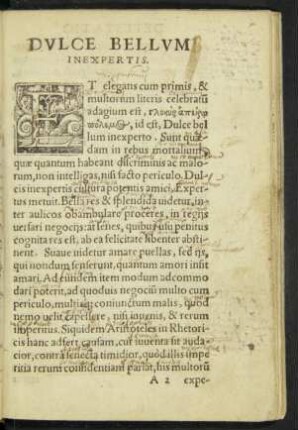 DVLCE BELLVM
INEXPERTIS.
ET elegans cum primis, &
multorum literis celebratū
adagium est, γλυκὺς ἀπείρῳ
πόλεμος, id est, Dulce bel
lum inexperto. Sunt quæ
dam in rebus mortalium,
quæ quantum habeant discriminis ac malo-
rum, non intelligas, nisi facto periculo. Dul-
cis inexpertis cultura potentis amici, Exper-
tus metuit. Bella res & splendida uidetur, in-
ter aulicos obambulare proceres, in regijs
uersari negocijs: at senes, quibus usu penitus
cognita res est, ab ea felicitate libenter absti-
nent. Suaue uidetur amare puellas, sed ijs,
qui nondum senserunt, quantum amori insit
amari. Ad eundem item modum adcommo
dari poterit, ad quoduis negociū multo cum
periculo, multisq; coniunctum malis, quod
nemo uelit capessere, nisi iuuenis, & rerum
imperitus. Siquidem Aristoteles in Rhetori-
cis hanc adfert causam, cur iuuenta sit auda-
cior, contrà senecta timidior, quòd illis impe
ritia rerum considentiam pariat, his multorū
A 2 expe-